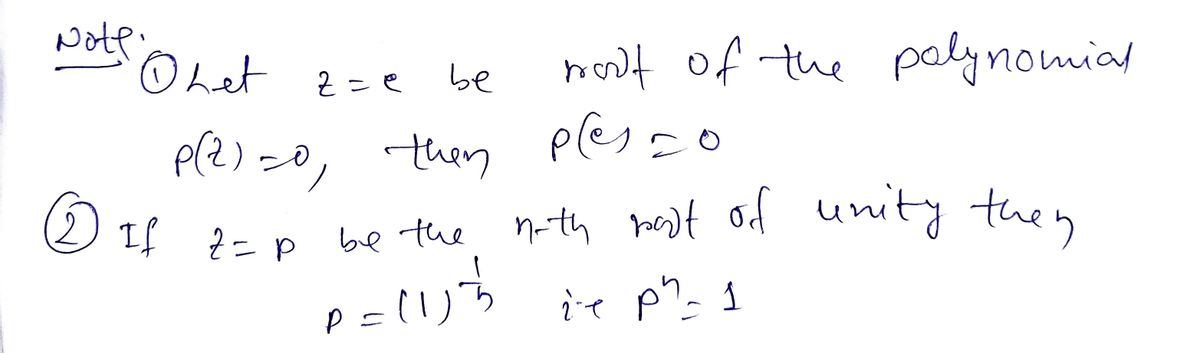 Note:
① Let z = e be root of the polynomial
p(z) = 0, then p(e) = 0
② If z = p be the n-th root of unity then
p = (1)^{1/n} i.e p^n = 1